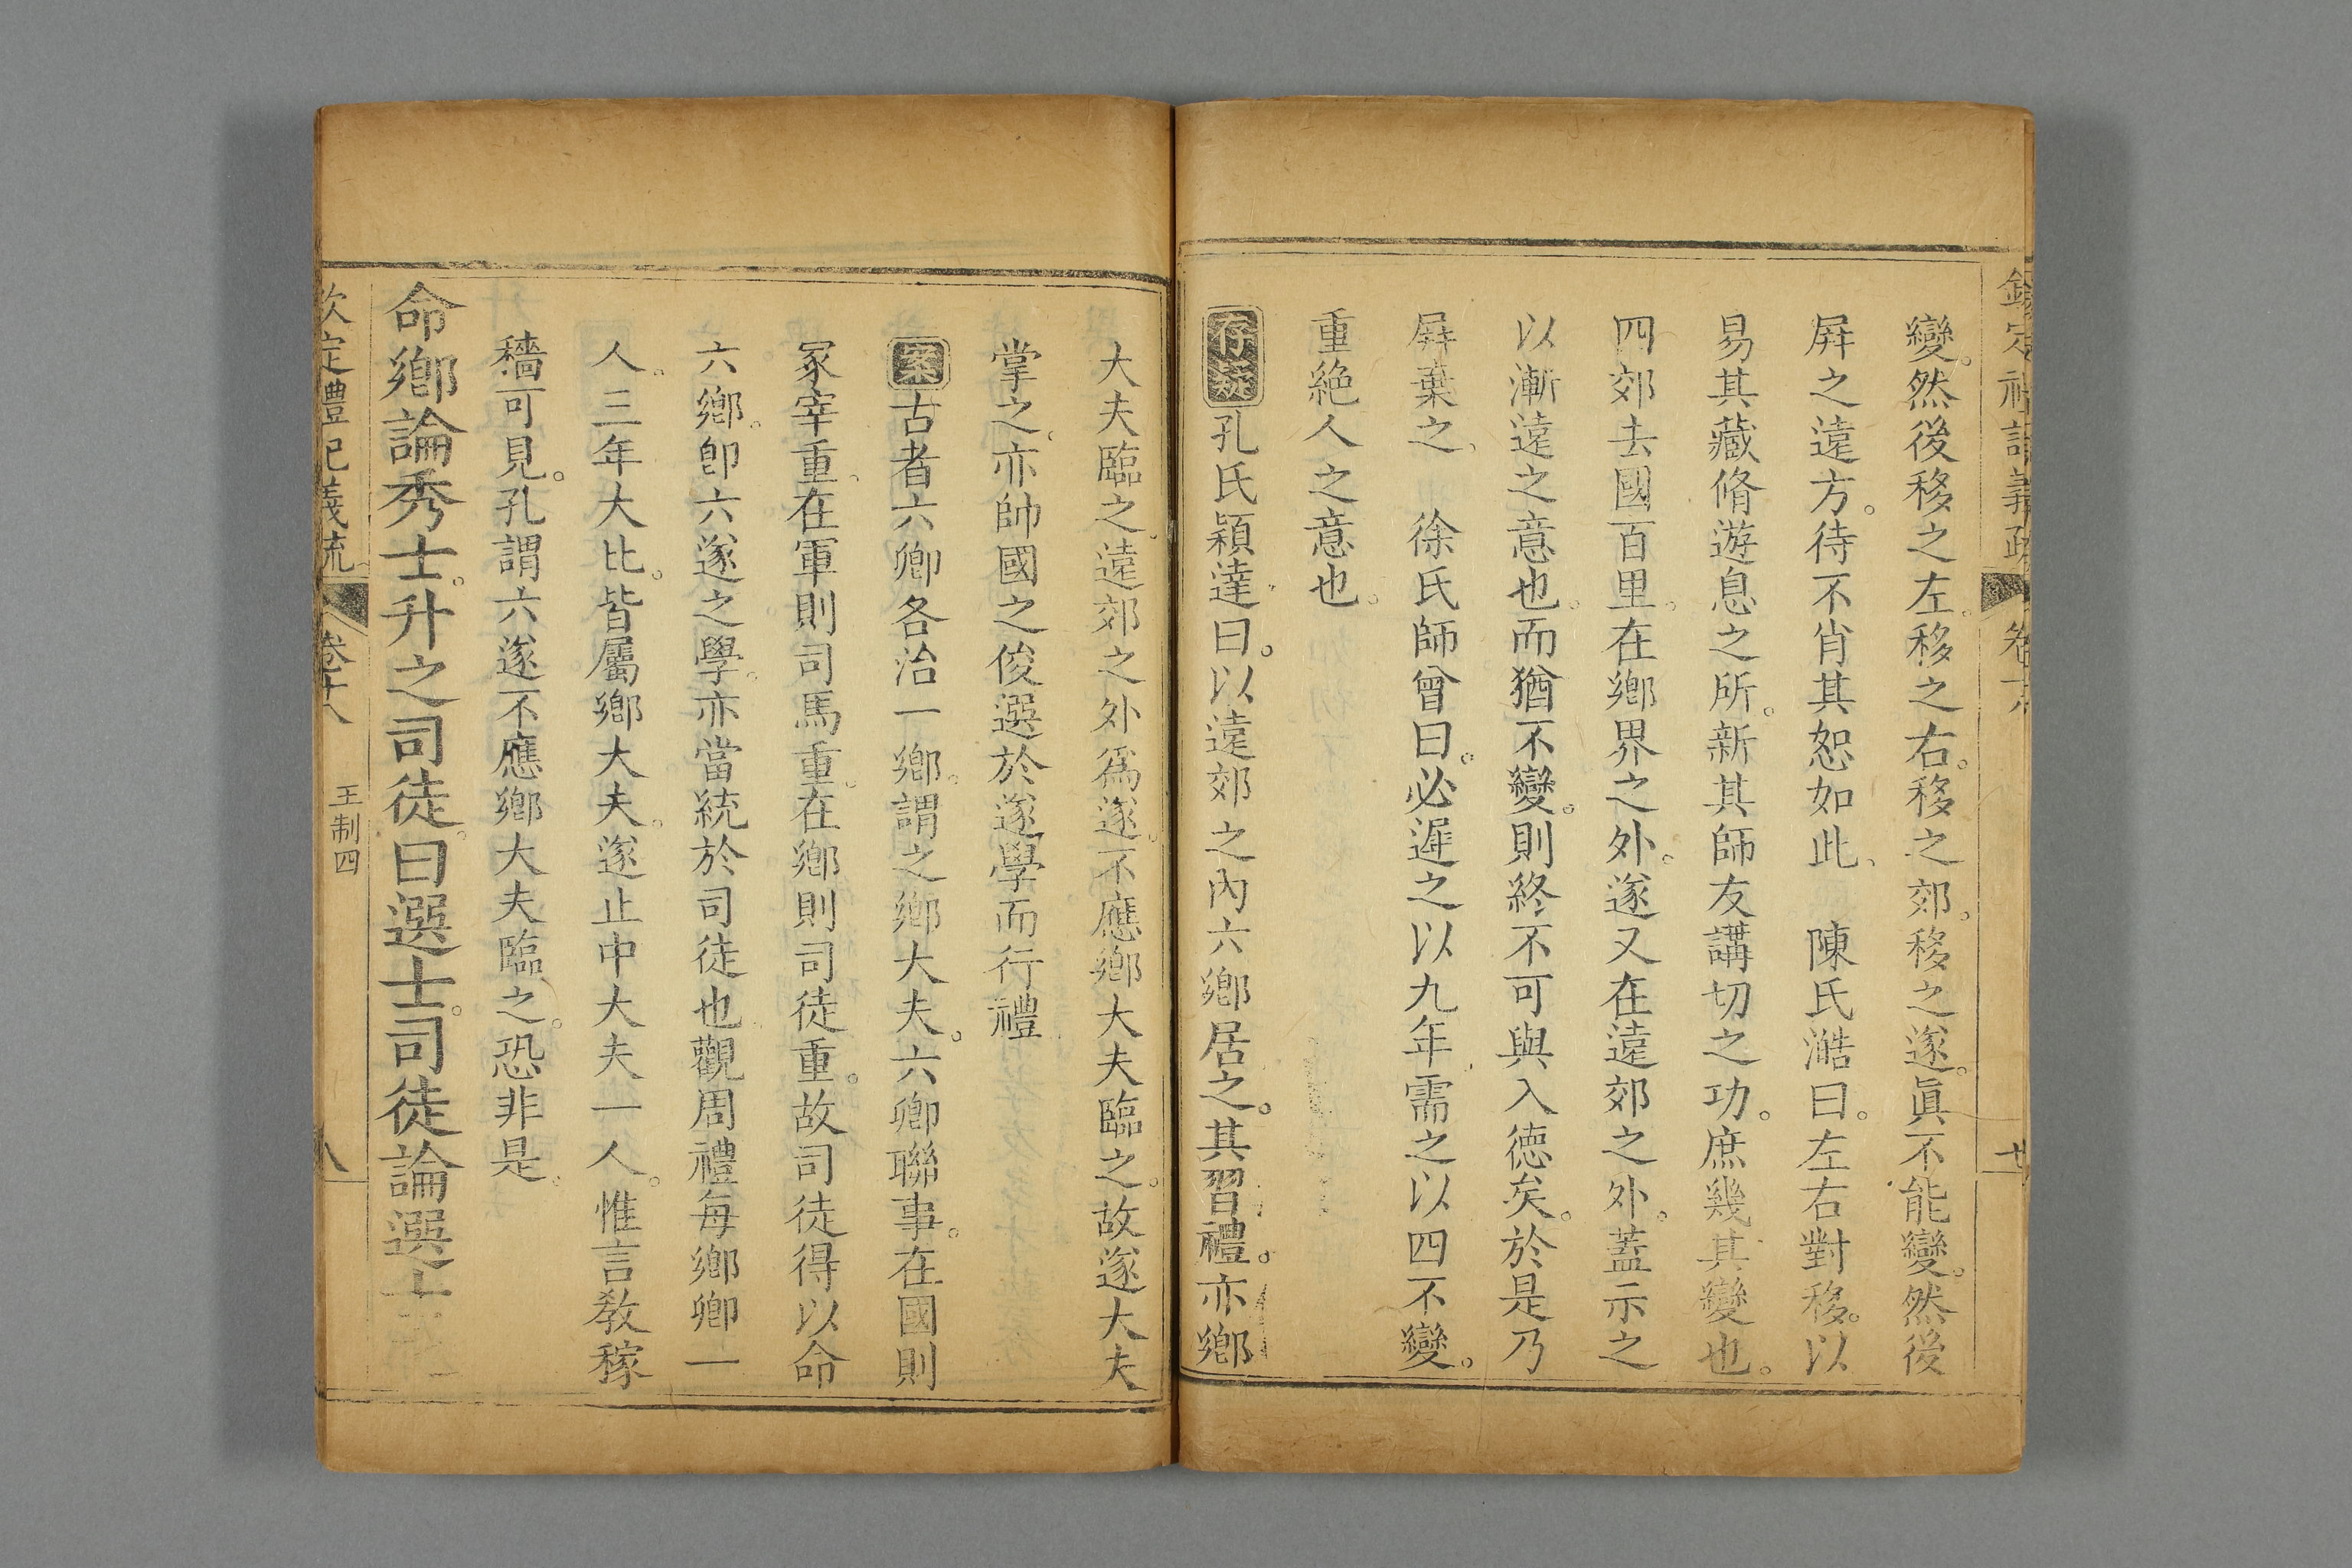 變。然後移之左。移之右。移之郊。移之遂。眞不能變。然後
屛之遠方。待不肖其恕如此、　陳氏澔曰。左右對移。以
易其藏脩遊息之所。新其師友講切之功。庶幾其變也。
四郊去國百里。在鄉界之外。遂又在遠郊之外。蓋示之
以漸遠之意也。而猶不變。則終不可與入德矣。於是乃
屛棄之、　徐氏師曾曰。必遲之以九年需之以四不變。
重絶人之意也。
存疑孔氏穎達曰。以遠郊之內六鄉居之。其習禮。亦鄉
大夫臨之。遠郊之外爲遂。不應鄉大夫臨之。故遂大夫
掌之。亦帥國之俊選於遂學而行禮
案古者六卿各治一鄉。謂之鄉大夫。六卿聯事。在國則
冢宰重。在軍則司馬重。在鄉則司徒重。故司徒得以命
六鄉。卽六遂之學。亦當統於司徒也觀周禮每鄉卿一
人。三年大比。皆屬鄉大夫。遂止中大夫一人。惟言敎稼
穡可見。孔謂六遂不應鄉大夫臨之。恐非是。
命鄉論秀士。升之司徒。曰選士。司徒論選士
欽定禮記義疏
卷十八
王制四
八